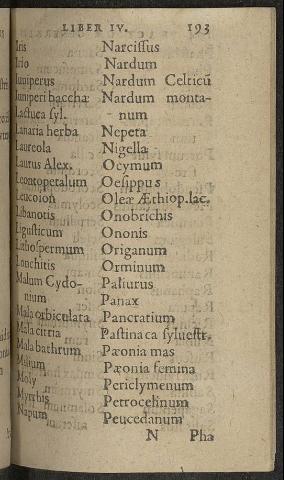 LIBER IV. 193
Iris
Irio
Iuniperus
Iuniperi baccha
Lactuca syl.
Lanaria herba
Laureola
Laurus Alex.
Leontopetalum
Leucoion
Libanotis
Ligusticum
Lithospermum
Lonchitis
Malum Cydo-
nium
Mala orbiculata
Mala citria
Malabathrum
Malium
Moly
Myrrhis
Napum
Narcissus
Nardum
Nardum Celticũ
Nardum monta-
num
Nepeta
Nigella
Ocymum
Oesippus
Oleæ Æthiop. lac.
Onobrichis
Ononis
Origanum
Orminum
Paliurus
Panax
Pancratium
Pastinaca sylvestr.
Pæonia mas
Pæonia femina
Periclymenum
Petrocelinum
Peucedanum
N Pha